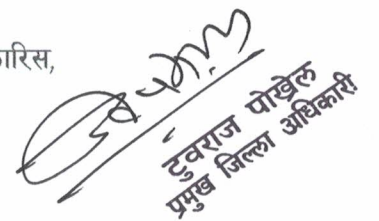 ारिस,
टुवराज पोख्रेल
प्रमुख जिल्ला अधिकारी